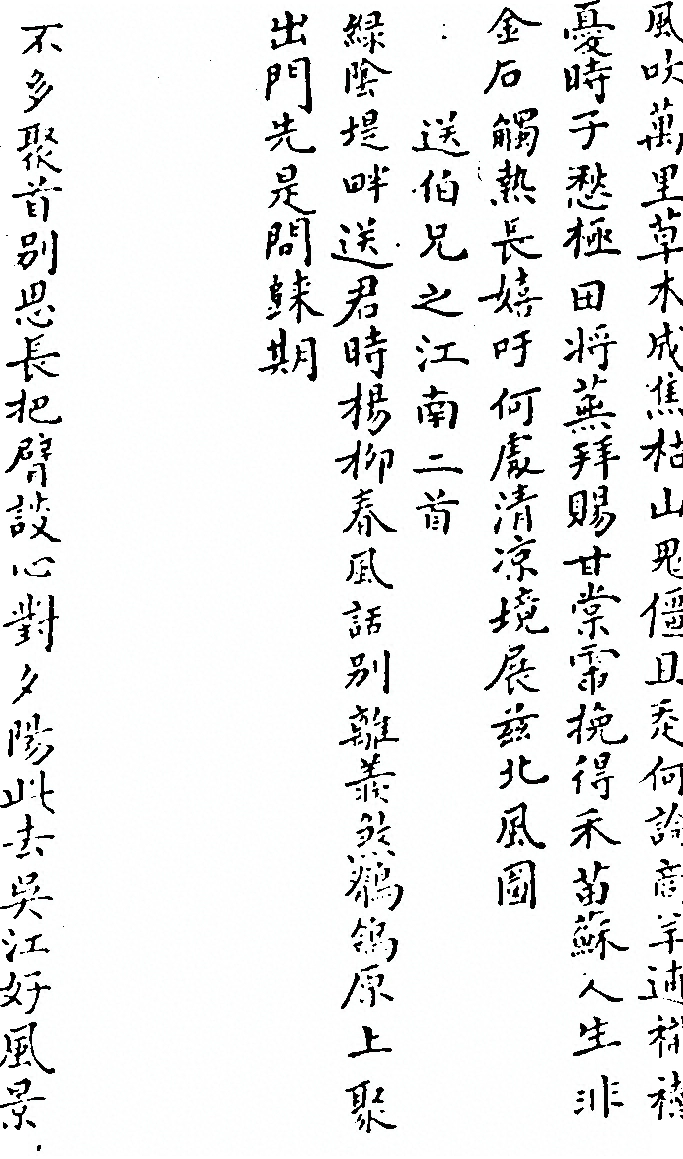 風吹萬里草木成焦枯山鬼僵且禿何論商羊逋
憂時予愁極田將蕪拜賜甘棠霈挽得禾苗蘇人生非
金石觸熱長嬉吁何處清凉境展茲北風圖
送伯兄之江南二首
綠陰堤畔送君時楊柳春風話別離羨煞鶺鴒原上聚
出門先是問歸期
不多聚首別思長把臂談心對夕陽此去吳江好風景